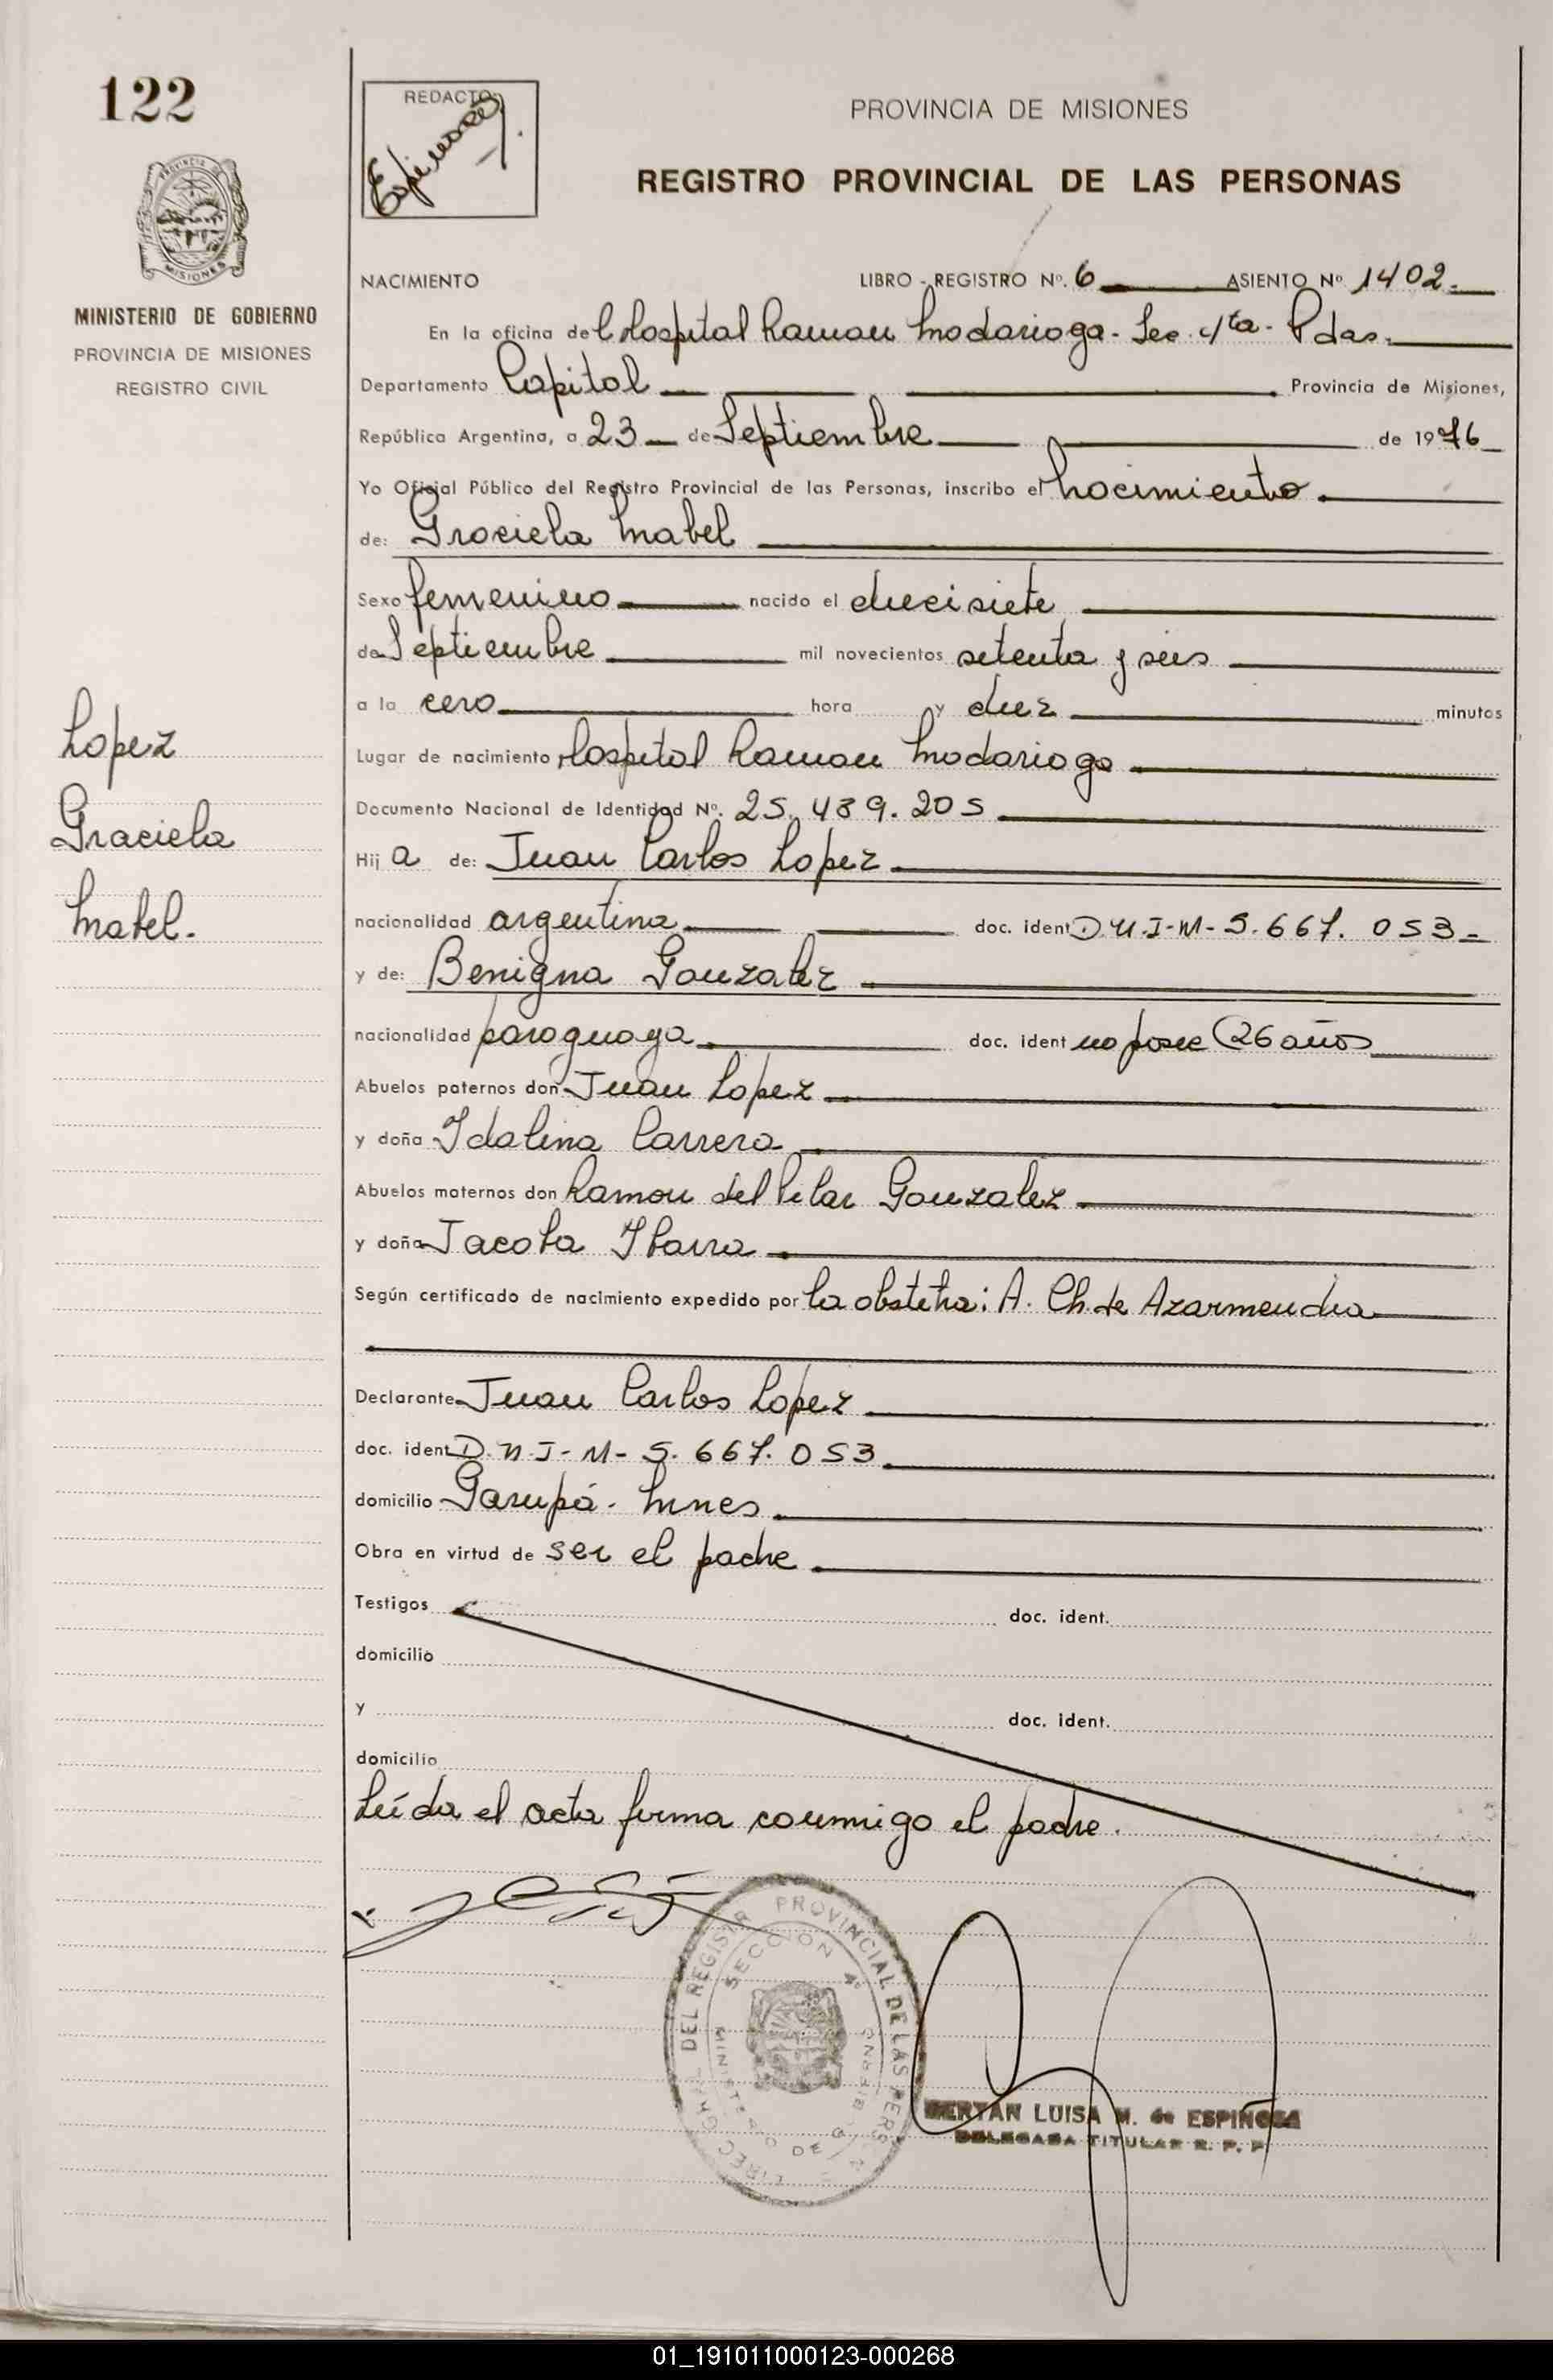 122
MINISTERIO DE GOBIERNO
PROVINCIA DE MISIONES
REGISTRO CIVIL
Lopez
Graciela
Mabel.
REDACTO:
Espinosa
PROVINCIA DE MISIONES
REGISTRO PROVINCIAL DE LAS PERSONAS
NACIMIENTO LIBRO - REGISTRO Nº. 6 ASIENTO Nº 1402.
En la oficina del Hospital Ramon Madariaga - Sec. 4ta - Pdas.
Departamento Capital Provincia de Misiones,
República Argentina, a 23 de Septiembre de 1976
Yo Oficial Público del Registro Provincial de las Personas, inscribo el nacimiento
de: Graciela Mabel
Sexo femenino nacido el diecisiete
de Septiembre mil novecientos setenta y seis
a la cero hora y diez minutos
Lugar de nacimiento Hospital Ramon Madariaga
Documento Nacional de Identidad Nº. 25.489.205
Hij a de: Juan Carlos Lopez
nacionalidad argentina doc. ident D.N.I-M-5.667.053
y de: Benigna Gonzalez
nacionalidad paraguaya doc. ident no posee (26 años
Abuelos paternos don Juan Lopez
y doña Idalina Carrera
Abuelos maternos don Ramon del Pilar Gonzalez
y doña Jacoba Ibarra
Según certificado de nacimiento expedido por la obstetra: A. Ch. de Azarmendia
Declarante Juan Carlos Lopez
doc. ident D.N.I-M-5.667.053
domicilio Garupá - Mnes
Obra en virtud de ser el padre
Testigos doc. ident.
domicilio
y doc. ident.
domicilio
Leída el acta firma conmigo el padre.
PROVINCIAL DE LAS PERS
SECCION 4º
BERTAN LUISA M. de ESPINOSA
DELEGADA TITULAR R. P. P.
01_191011000123-000268